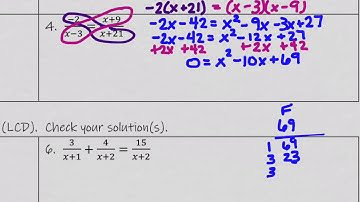 -2(x+21) = (x-3)(x-9)
4. -2/x-3 = x+9/x+21
-2x-42 = x²-9x-3x+27
-2x-42 = x²-12x+27
+2x +42 +2x +42
0 = x²-10x+69
(LCD). Check your solution(s).
F
69
1 69
3 23
3
6. 3/x+1 + 4/x+2 = 15/x+2